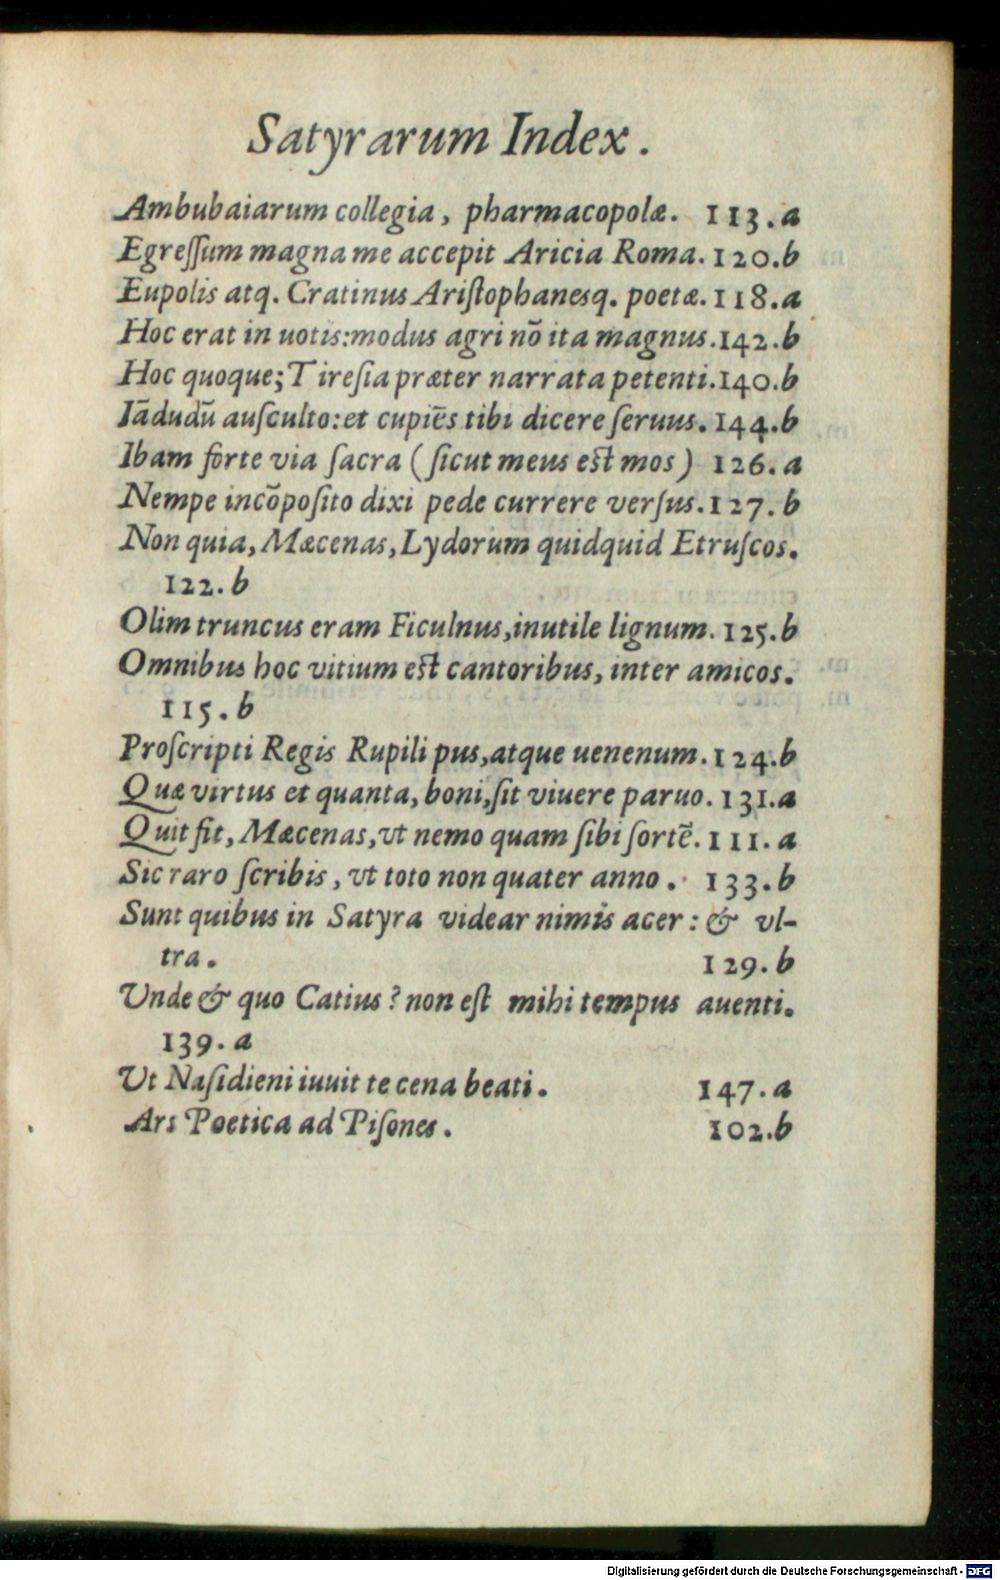 Satyrarum Index.
Ambubaiarum collegia, pharmacopolæ. 113.a
Egreſſum magna me accepit Aricia Roma. 120.b
Eupolis atq. Cratinus Ariſtophanesq. poetæ. 118.a
Hoc erat in uotis: modus agri nō ita magnus. 142.b
Hoc quoque; Tireſia præter narrata petenti. 140.b
Iādudū auſculto: et cupiēs tibi dicere ſeruus. 144.b
Ibam forte via ſacra (ſicut meus eſt mos) 126.a
Nempe incōpoſito dixi pede currere verſus. 127.b
Non quia, Mæcenas, Lydorum quidquid Etruſcos.
122.b
Olim truncus eram Ficulnus, inutile lignum. 125.b
Omnibus hoc vitium eſt cantoribus, inter amicos.
115.b
Proſcripti Regis Rupili pus, atque uenenum. 124.b
Quæ virtus et quanta, boni, ſit viuere paruo. 131.a
Quit fit, Mæcenas, vt nemo quam ſibi ſortē. 111.a
Sic raro ſcribis, vt toto non quater anno. 133.b
Sunt quibus in Satyra videar nimis acer: & vl-
tra. 129.b
Unde & quo Catius? non eſt mihi tempus auenti.
139.a
Ut Naſidieni iuuit te cena beati. 147.a
Ars Poetica ad Piſones. 102.b
Digitalisierung gefördert durch die Deutsche Forschungsgemeinschaft - DFG